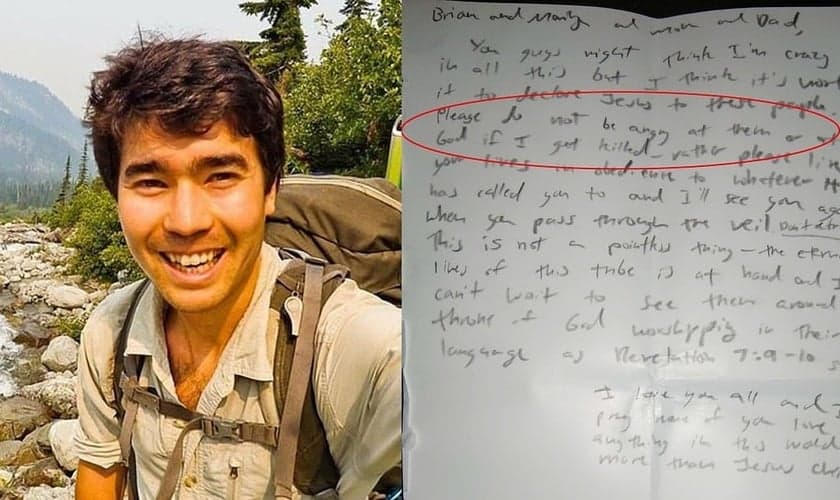 Brian and Mary and Mom and Dad,
You guys might think I'm crazy
in all this but I think it's
it to declare Jesus to these people
Please do not be angry at them or at
God if I get killed - rather please
your lives in obedience to whatever
has called you to and I'll see you
when you pass through the veil
This is not a pointless thing - the
lives of this tribe is at hand and I
can't wait to see them around
throne of God worshipping in their
language as Revelation 7:9-10
I love you all and
pray none of you love
anything in this world
more than Jesus